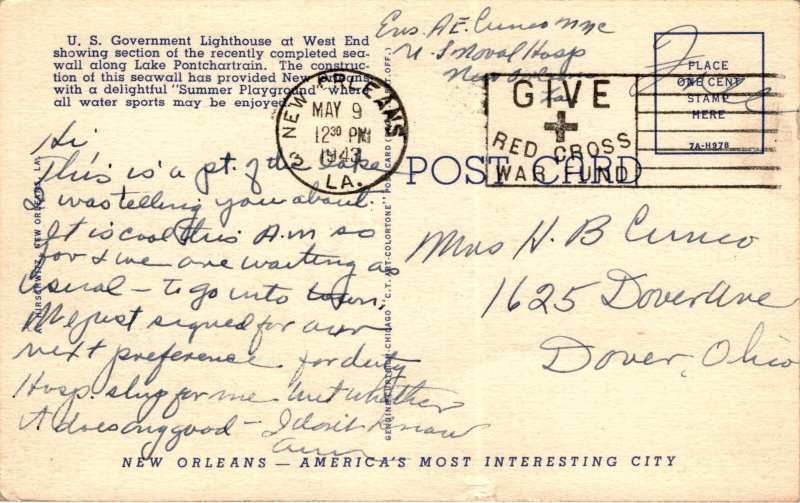 U. S. Government Lighthouse at West End
showing section of the recently completed sea-
wall along Lake Pontchartrain. The construc-
tion of this seawall has provided New Orleans
with a delightful "Summer Playground" where
all water sports may be enjoyed.
Hi
This is a pt. of the Lake
I was telling you about.
It is cool this A.M so
far & we are waiting as
usual - to go into town.
We just signed for our
next preference for duty
Hosp. ship for me but whether
it does any good - I don't know
A. HIRSCHWITZ, NEW ORLEANS, LA.
GENUINE CURTEICH-CHICAGO "C.T. ART-COLORTONE" POST CARD
NEW ORLEANS
MAY 9
12 30 PM
1943
LA.
Ens. A E. Cunco NNC
U. S Naval Hosp
New Orleans
La
GIVE
RED CROSS
WAR FUND
Free
PLACE
ONE CENT
STAMP
HERE
7A-H978
POST CARD
Mrs H. B Cunco
1625 Dover Ave
Dover, Ohio
NEW ORLEANS — AMERICA'S MOST INTERESTING CITY